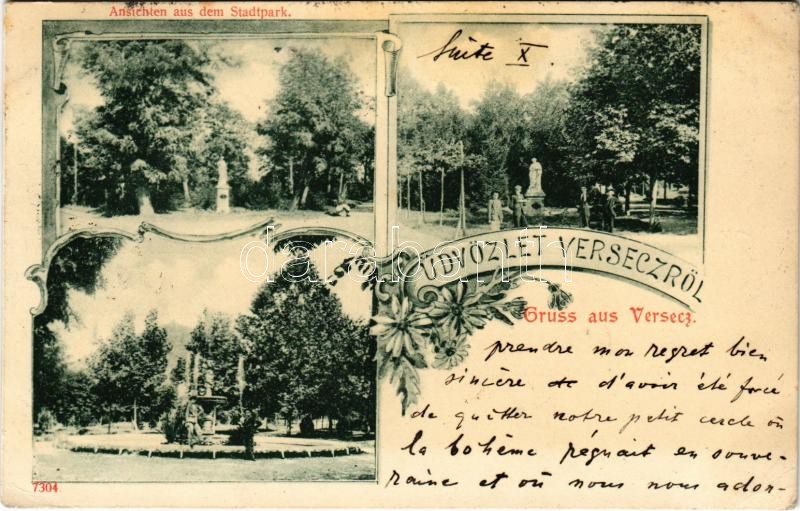 Ansichten aus dem Stadtpark.
Suite X.
ÜDVÖZLET VERSECZRŐL
Gruss aus Versecz.
darabanth.com
prendre mon regret bien
sincère de d'avoir été forcé
de quitter notre petit cercle où
la bohème régnait en souve-
raine et où nous nous ador-
7304